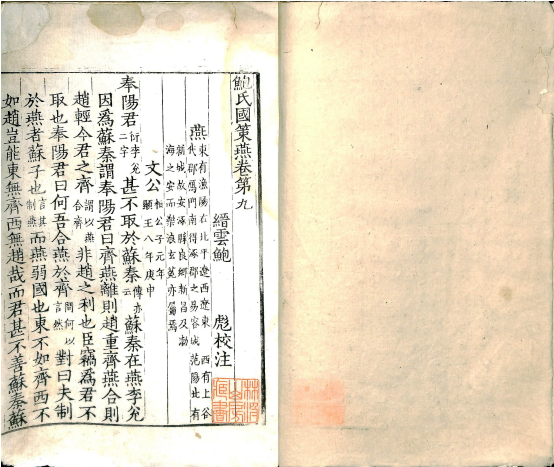 鮑氏國策燕卷第九
縉雲鮑 彪校注
燕 東有漁陽右北平遼西遼東 西有上谷
代郡鴈門南得涿郡之易容城范陽北有
新城故安涿縣良鄉新昌及渤
海之安次樂浪玄菟亦屬焉
文公 桓公子元年
顯王八年庚申
奉陽君 衍李兌
二字 甚不取於蘇秦 傳亦
云 蘇秦在燕李兌
因爲蘇秦謂奉陽君曰齊燕離則趙重齊燕合則
趙輕今君之齊 謂以燕
合齊 非趙之利也臣竊爲君不
取也奉陽君曰何吾合燕於齊 問何以
言然 對曰夫制
於燕者蘇子也 言其
制燕 而燕弱國也東不如齊西不
如趙豈能東無齊西無趙哉而君甚不善蘇秦蘇